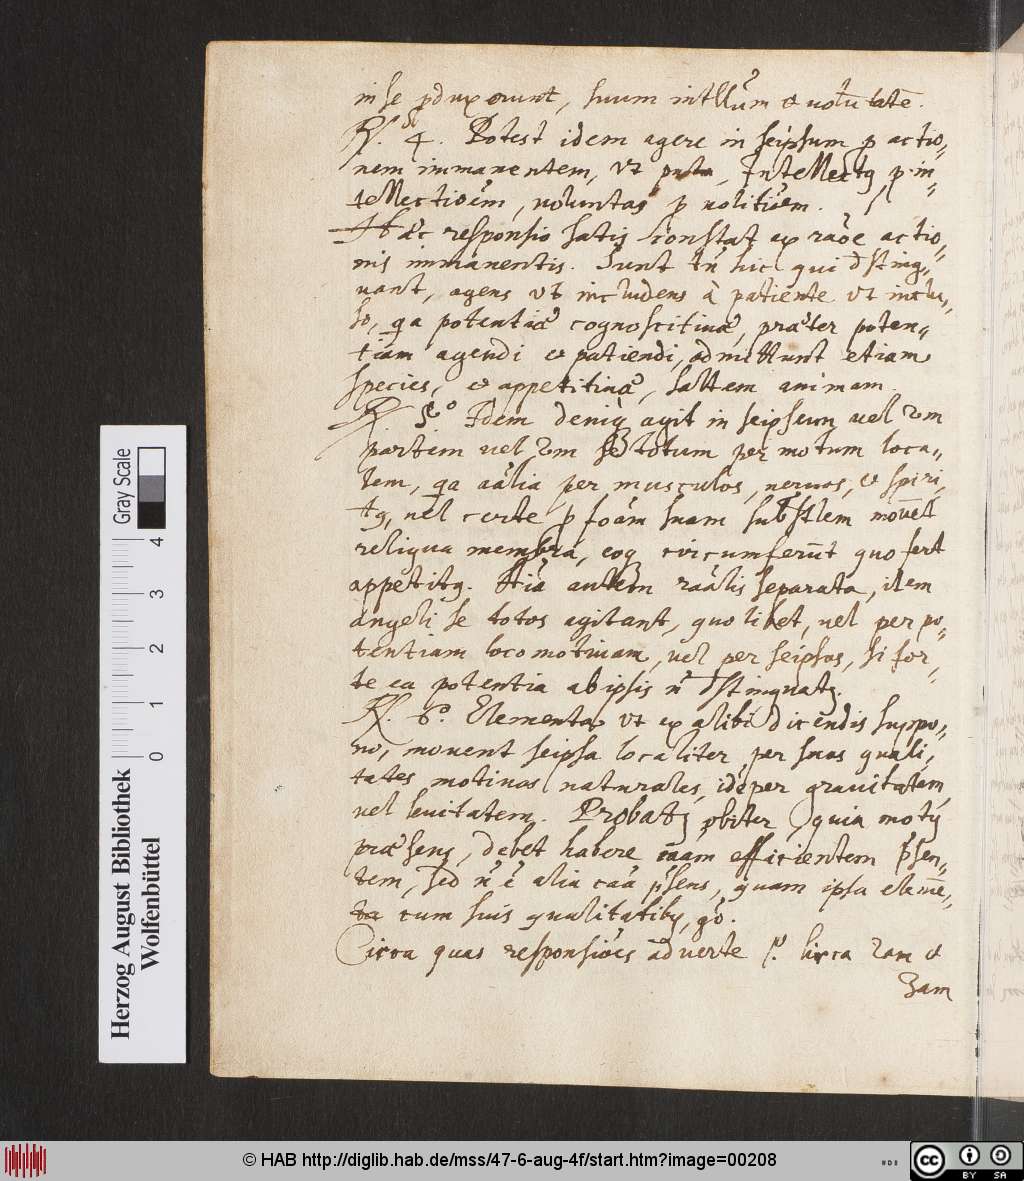 in se pduxerunt, suum intllūm et volūtatē.
R. 4. Potest idem agere in seipsum p actio,,
nem immanentem, ut puta, Intellectq, p in,,
tellectiōem, voluntas p volitiōem.
Haec responsio satis constat ex raōe actio,,
nis immanentis. Sunt tn̄ hic qui dsting,,
uant, agens ut includens à patiente ut inclu,,
so, qa potentiae cognoscitivae, praeter poten,,
tiam agendi et patiendi, admittunt etiam
species, et appetitivae, saltem animam.
R. 5.º Idem deniq agit in seipsum vel 2um
partem vel 2um se totum per motum loca,,
lem, qa aālia per musculos, nervos, et spiri,
tq, vel certe p foām suam subst̄lem movēt
reliqua membra, eoq circumferūt quo fert
appetitq. Aīa autem raālis separata, item
angeli se totos agitant, quo libet, vel per po,,
tentiam locomotivam, vel per seipsos, si for,,
te ea potentia ab ipsis n̄ dstinguatq.
R. 6.º Elementa, ut ex alibi dicendis suppo,,
no, movent seipsa localiter per suas quali,
tates motivas naturales, id ē per gravitatem
vel levitatem. Probatq obiter quia motq
praesens, debet habere cāam efficientem p̄sen,,
tem, sed n̄ ē alia caā p̄sens, quam ipsa elemē,,
ta cum suis qualitatibq, gō.
Circa quas responsiōes adverte p. circa 2am et
3am
Gray Scale
0 1 2 3 4
Herzog August Bibliothek
Wolfenbüttel
© HAB http://diglib.hab.de/mss/47-6-aug-4f/start.htm?image=00208
cc BY SA